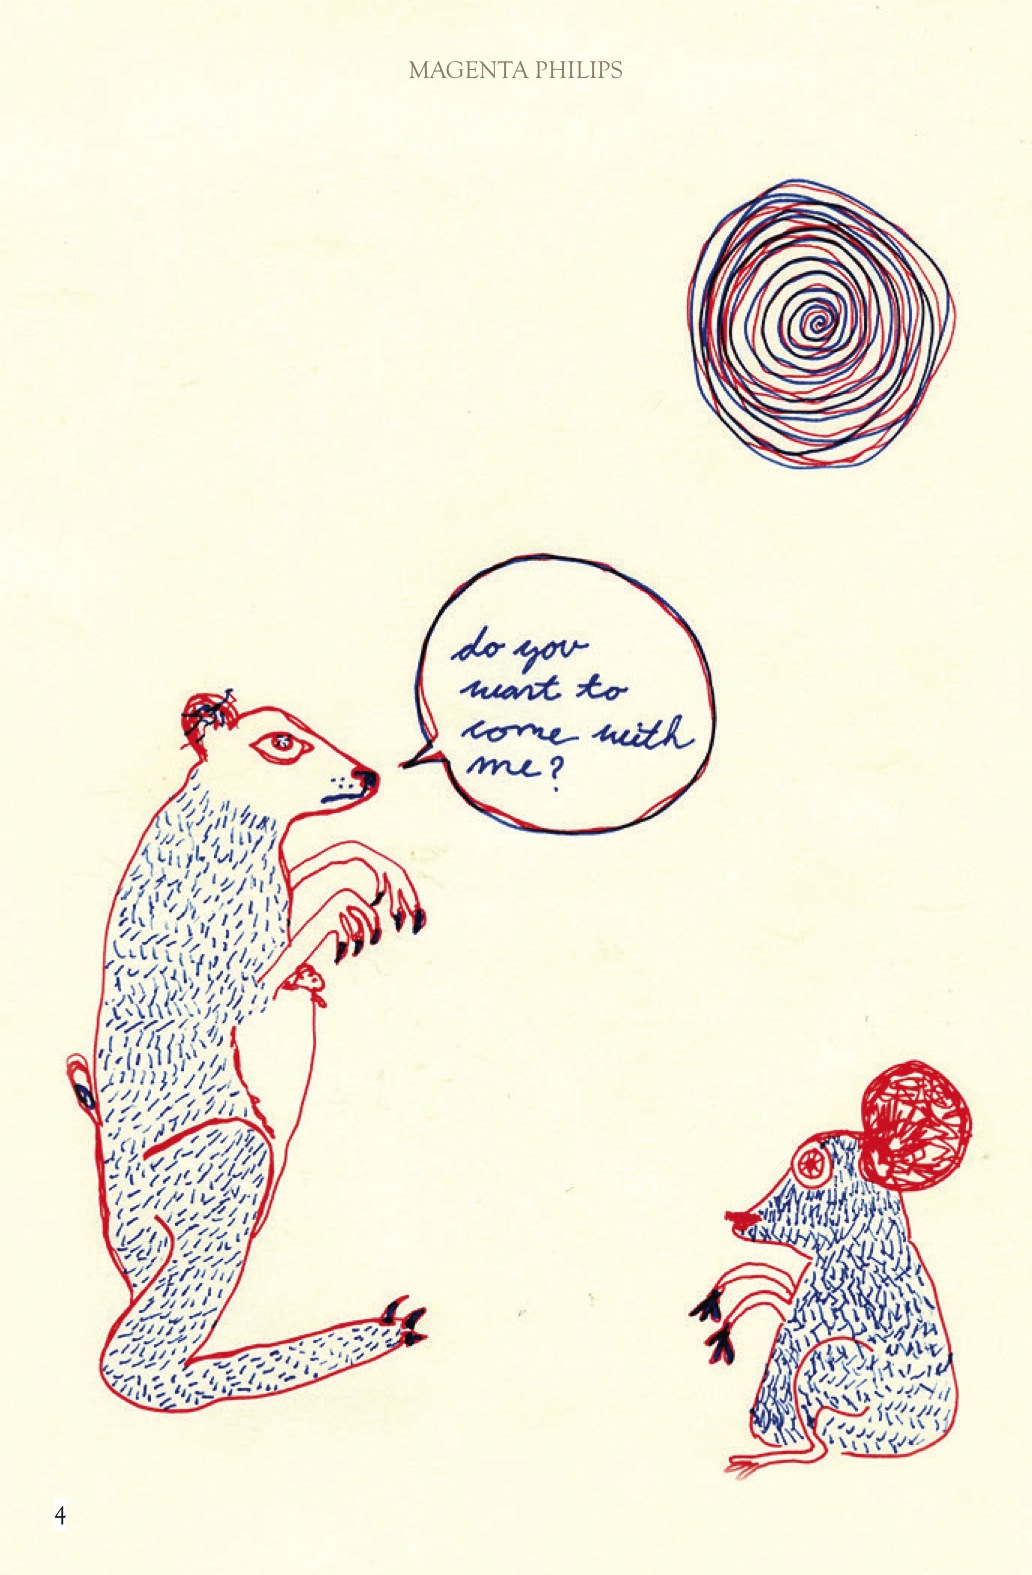 MAGENTA PHILIPS
do you
want to
come with
me?
4